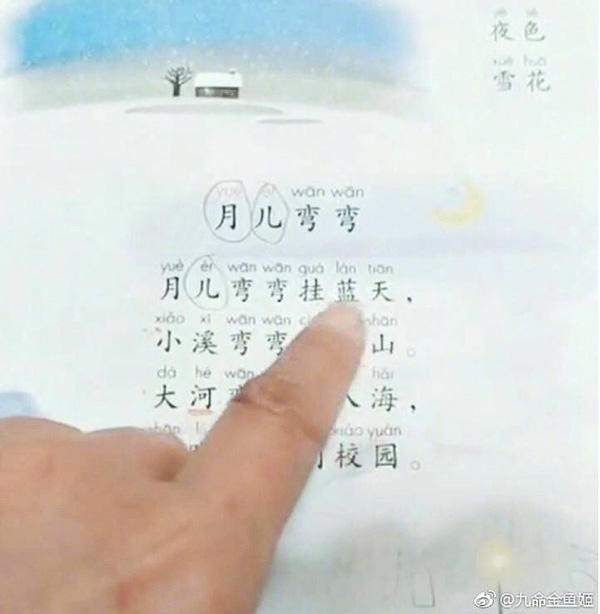 yè sè
夜色
xuě huā
雪花
yuè ér wān wān
月儿弯弯
yuè ér wān wān guà lán tiān
月儿弯弯挂蓝天，
xiǎo xī wān wān shān
小溪弯弯 山。
dà hé wān hǎi
大河弯 海，
xiào yuán
校园。
@九命金鱼姬